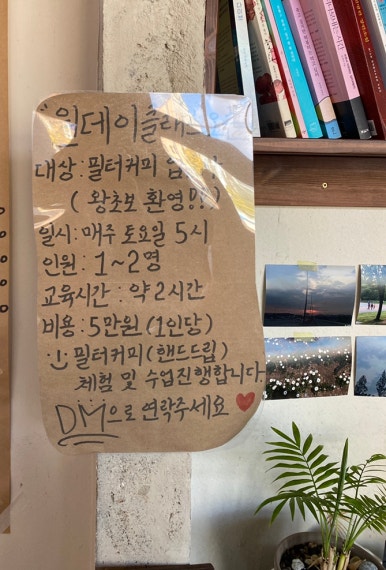 원데이클래스
대상: 필터커피
(왕초보 환영!!)
일시: 매주 토요일 5시
인원: 1~2명
교육시간: 약 2시간
비용: 5만원 (1인당)
필터커피 (핸드드립)
체험 및 수업진행합니다.
DM으로 연락주세요 ♥